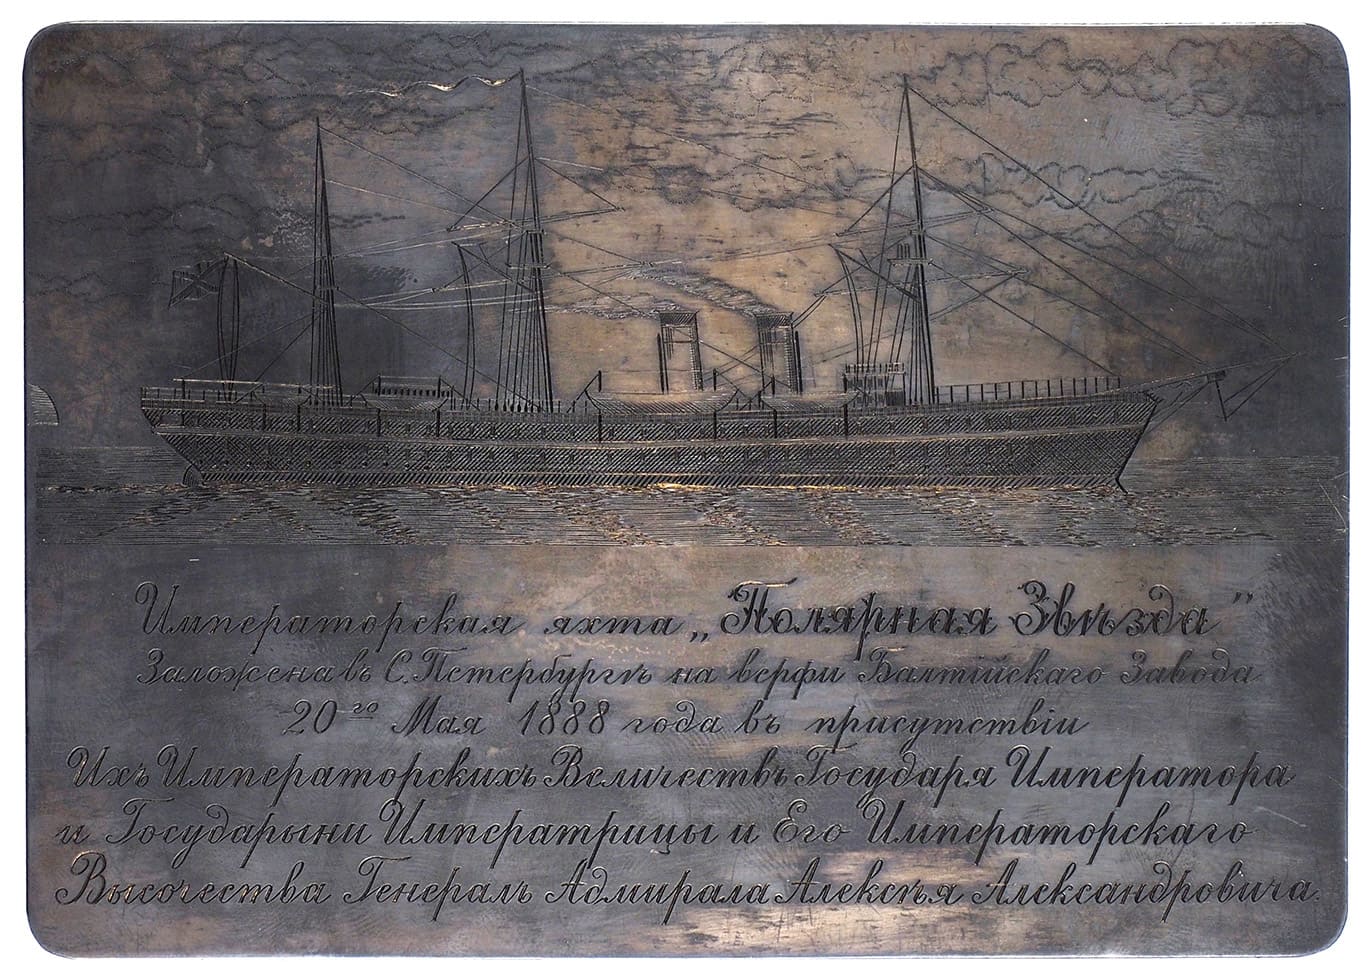 Императорская яхта „Полярная Звѣзда"
Заложена въ С. Петербургѣ на верфи Балтійскаго Завода
20го Мая 1888 года въ присутствіи
Ихъ Императорскихъ Величествъ Государя Императора
и Государыни Императрицы и Его Императорскаго
Высочества Генералъ Адмирала Алексѣя Александровича.